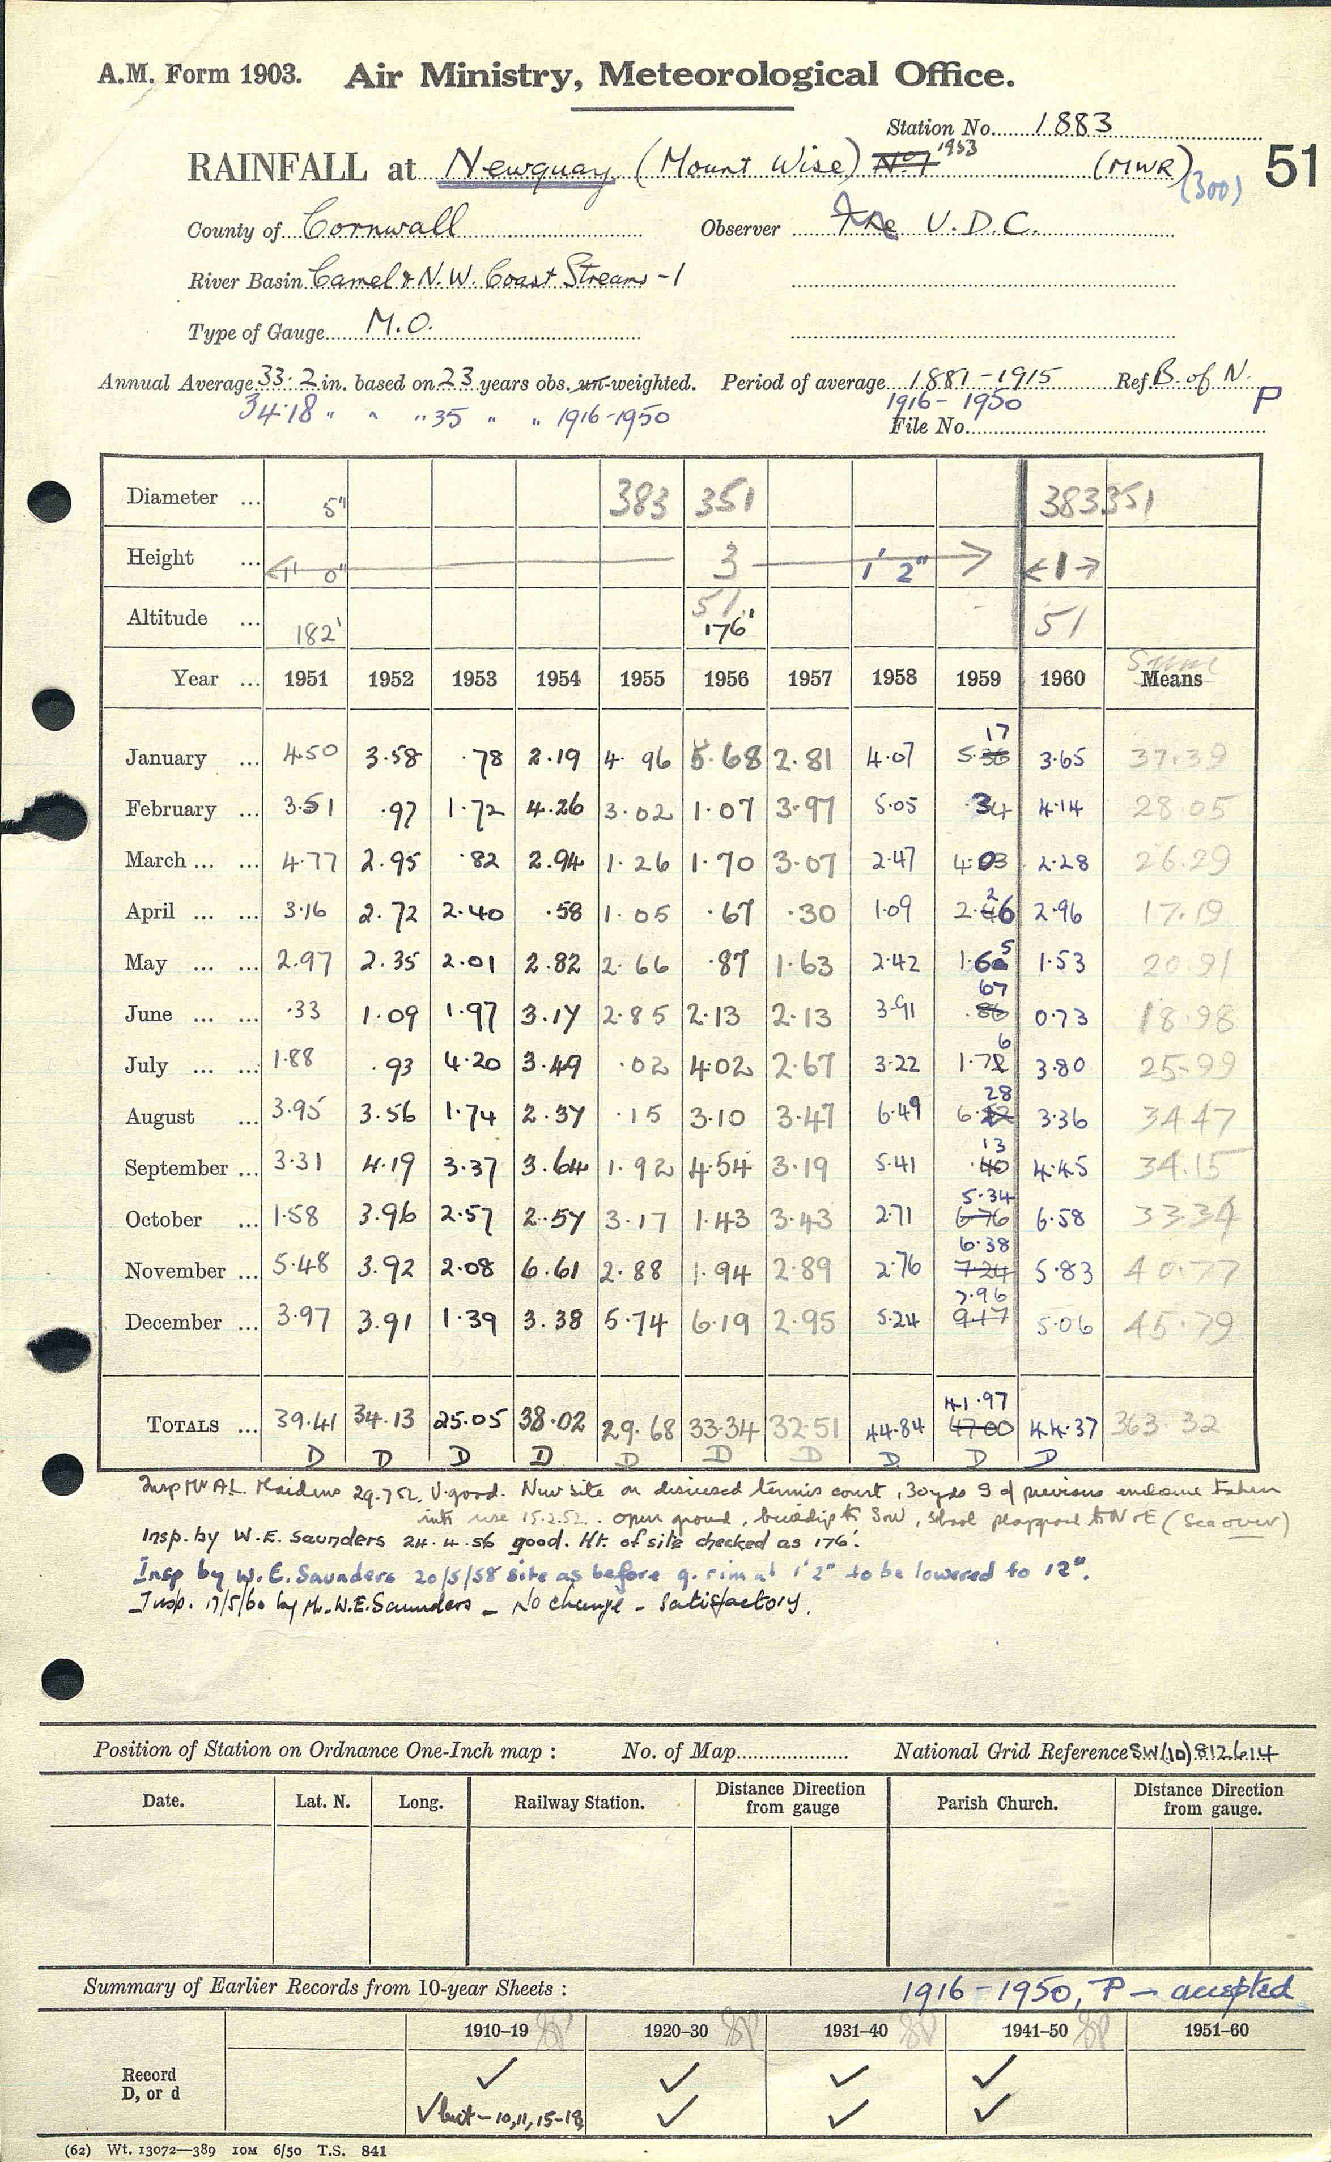 A.M. Form 1903. Air Ministry, Meteorological Office.
Station No. 1883
RAINFALL at Newquay (Mount Wise) No 1 1953 (MWR) 51
(300)
County of Cornwall Observer The U.D.C.
River Basin Camel & N.W. Coast Streams - 1
Type of Gauge M.O.
Annual Average 33.2 in. based on 23 years obs. un-weighted. Period of average 1881-1915 Ref. B. of N.
34.18 " " " 35 " " 1916-1950 1916-1950 P
File No.
Diameter ... 5" 383 351 383 351
Height ... 1' 0" 3 1' 2" 1
Altitude ... 182' 51 176' 51
Year ... 1951 1952 1953 1954 1955 1956 1957 1958 1959 1960 Means Sums
January ... 4.50 3.58 .78 2.19 4.96 5.68 2.81 4.07 5.36 17 3.65 37.39
February ... 3.51 .97 1.72 4.26 3.02 1.07 3.97 5.05 .34 4.14 28.05
March ... ... 4.77 2.95 .82 2.94 1.26 1.70 3.07 2.47 4.03 2.28 26.29
April ... ... 3.16 2.72 2.40 .58 1.05 .67 .30 1.09 2.46 2 2.96 17.19
May ... ... 2.97 2.35 2.01 2.82 2.66 .87 1.63 2.42 1.60 5 1.53 20.91
June ... ... .33 1.09 1.97 3.17 2.85 2.13 2.13 3.91 .86 67 0.73 18.98
July ... ... 1.88 .93 4.20 3.49 .02 4.02 2.67 3.22 1.72 6 3.80 25.99
August ... 3.95 3.56 1.74 2.37 .15 3.10 3.47 6.49 6. 28 3.36 34.47
September ... 3.31 4.19 3.37 3.64 1.92 4.54 3.19 5.41 .40 13 4.45 34.15
October ... 1.58 3.96 2.57 2.57 3.17 1.43 3.43 2.71 6.76 5.34 6.58 33.34
November ... 5.48 3.92 2.08 6.61 2.88 1.94 2.89 2.76 7.24 6.38 5.83 40.77
December ... 3.97 3.91 1.39 3.38 5.74 6.19 2.95 5.24 9.17 7.96 5.06 45.79
TOTALS ... 39.41 34.13 25.05 38.02 29.68 33.34 32.51 44.84 47.00 41.97 44.37 363.32
D D D D D D D D D D
Insp Mr A.L. Maidens 29.7.52. V.good. New site on disused tennis court, 30 yds S of previous enclosure taken
into use 15.2.52. Open ground, buildings to S & W, school playground to N & E (See over)
Insp. by W.E. Saunders 24.4.56 good. Ht. of site checked as 176'.
Insp by W.E. Saunders 20/5/58 site as before g. rim at 1' 2" to be lowered to 12".
Insp. 17/5/60 by Mr. W.E. Saunders - No change - satisfactory.
Position of Station on Ordnance One-Inch map : No. of Map National Grid Reference SW(10) 812614
Date. Lat. N. Long. Railway Station. Distance Direction from gauge Parish Church. Distance Direction from gauge.
Summary of Earlier Records from 10-year Sheets : 1916-1950, P - accepted
1910–19 1920–30 1931–40 1941–50 1951–60
Record ✓ ✓ ✓ ✓
D, or d ✓ but - 10, 11, 15-18 ✓ ✓ ✓
(62) Wt. 13072—389 10M 6/50 T.S. 841